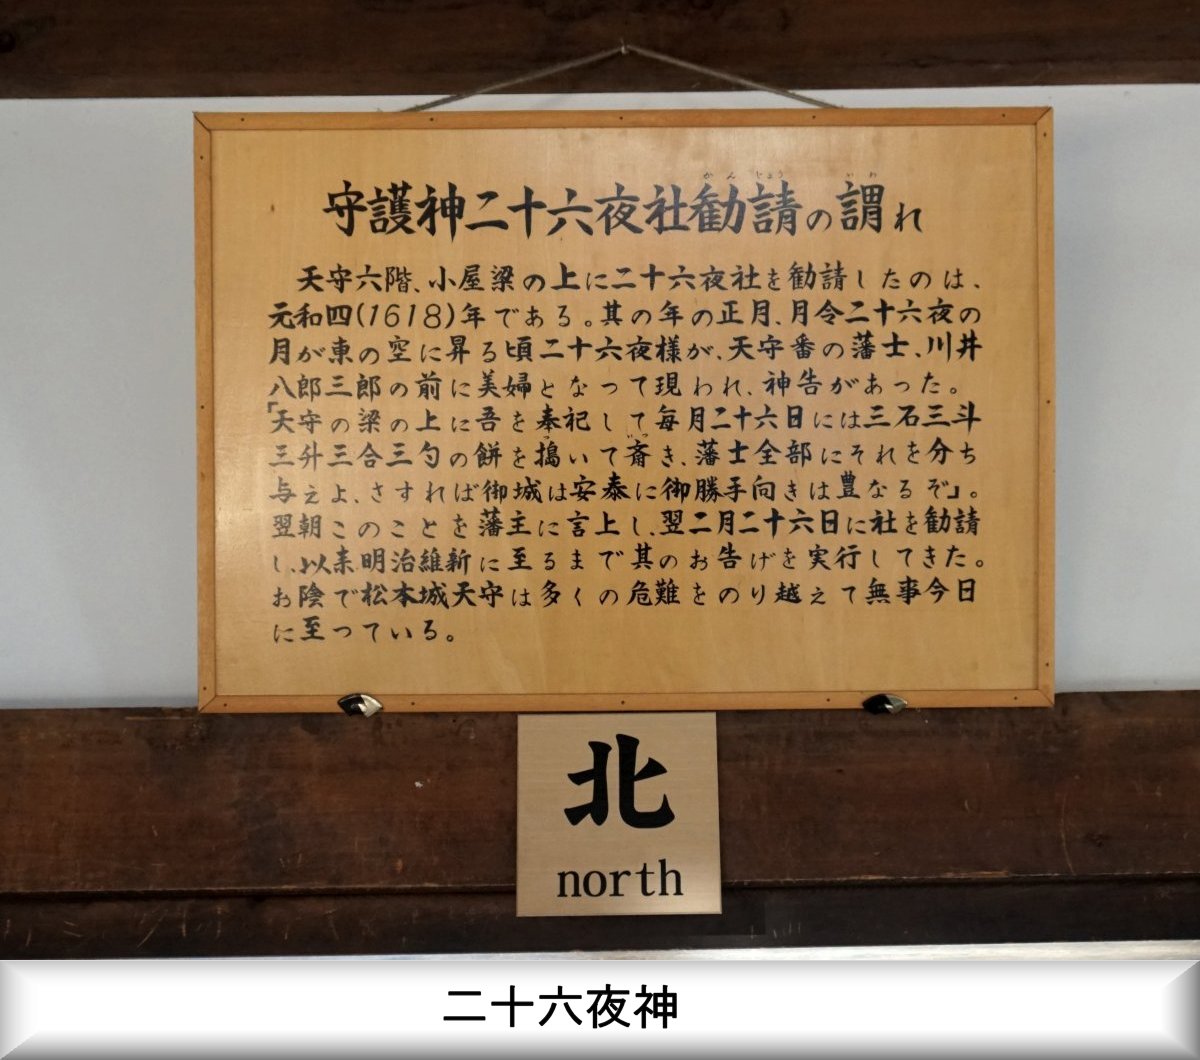 守護神二十六夜社勧請の謂れ
かんじょう いわ
天守六階、小屋梁の上に二十六夜社を勧請したのは、
元和四(1618)年である。其の年の正月、月令二十六夜の
月が東の空に昇る頃二十六夜様が、天守番の藩士、川井
八郎三郎の前に美婦となって現われ、神告があった。
「天守の梁の上に吾を奉祀して毎月二十六日には三石三斗
三升三合三勺の餅を搗いて斎き、藩士全部にそれを分ち
与えよ、さすれば御城は安泰に御勝手向きは豊なるぞ」。
翌朝このことを藩主に言上し、翌二月二十六日に社を勧請
し、以来明治維新に至るまで其のお告げを実行してきた。
お陰で松本城天守は多くの危難をのり越えて無事今日
に至っている。
北
north
二十六夜神